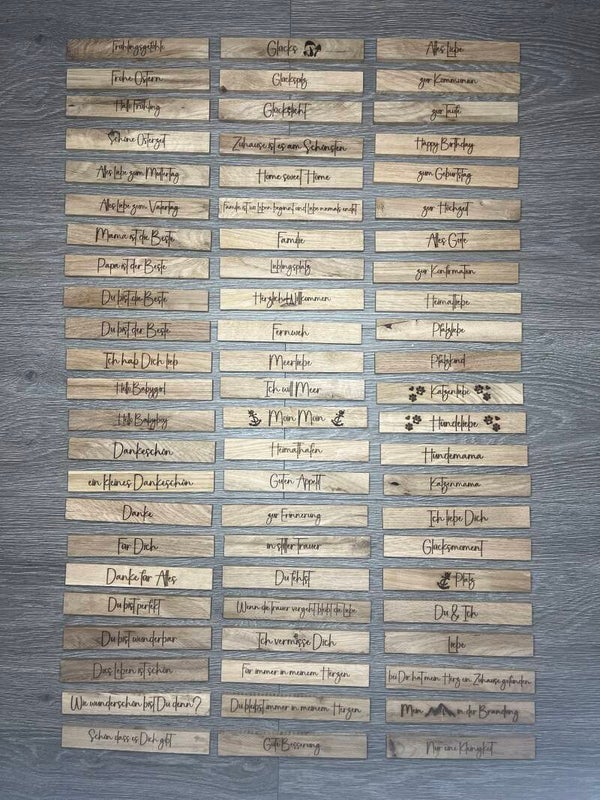 Frühlingsgefühle
Frohe Ostern
Hallo Frühling
Schöne Osterzeit
Alles liebe zum Muttertag
Alles liebe zum Vatertag
Mama ist die Beste
Papa ist der Beste
Du bist die Beste
Du bist der Beste
Ich hab Dich lieb
Hello Babygirl
Hello Babyboy
Dankeschön
ein kleines Dankeschön
Danke
Für Dich
Danke für Alles
Du bist perfekt
Du bist wunderbar
Das Leben ist schön
Wie wunderschön bist Du denn?
Schön dass es Dich gibt
Glücks
Glückspilz
Glückslicht
Zuhause ist es am Schönsten
Home sweet Home
Familie ist wo Leben beginnt und Liebe niemals endet
Familie
Lieblingsplatz
Herzlich Willkommen
Fernweh
Meerliebe
Ich will Meer
Moin Moin
Heimathafen
Guten Appetit
zur Erinnerung
in stiller Trauer
Du fehlst
Wenn die Trauer vergeht bleibt die Liebe
Ich vermisse Dich
Für immer in meinem Herzen
Du bleibst immer in meinem Herzen
Gute Besserung
Alles Liebe
zur Kommunion
zur Taufe
Happy Birthday
zum Geburtstag
zur Hochzeit
Alles Gute
zur Konfirmation
Heimatliebe
Pfalzliebe
Pfalzkind
Katzenliebe
Hundeliebe
Hundemama
Katzenmama
Ich liebe Dich
Glücksmoment
Platz
Du & Ich
Liebe
bei Dir hat mein Herz ein Zuhause gefunden
Mein in der Brandung
Nur eine Kleinigkeit